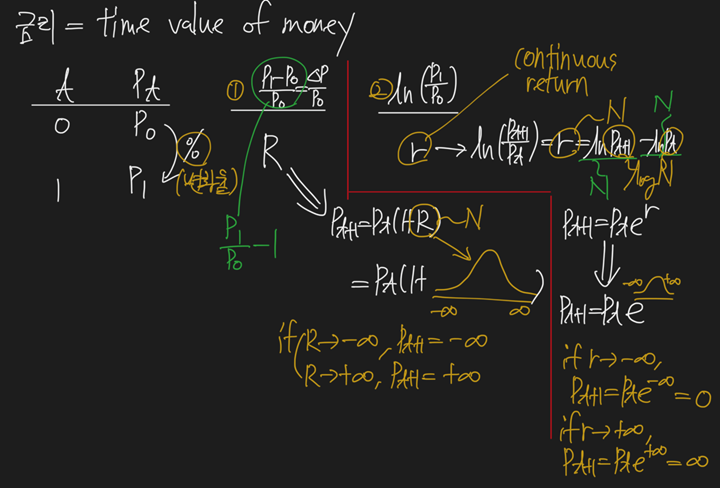 금리 = time value of money
t Pt
0 P0
1 P1
%
(변화율)
① (P1-P0)/P0 = ΔP/P0
R
P1/P0 - 1
Pt+1 = Pt(1+R) ~ N
= Pt(1+ )
-∞ ∞
if R→-∞, Pt+1 = -∞
R→+∞, Pt+1 = +∞
② ln(P1/P0)
continuous
return
r → ln(Pt+1/Pt) = r = ln Pt+1 - ln Pt
N N
N log N
Pt+1 = Pt e^r
-∞ +∞
Pt+1 = Pt e
if r→-∞,
Pt+1 = Pt e^-∞ = 0
if r→+∞,
Pt+1 = Pt e^+∞ = ∞